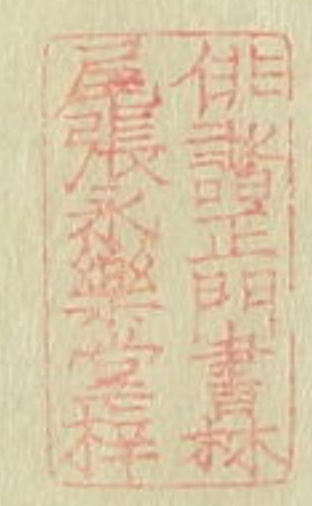 俳諧正門書林
尾張永樂堂梓